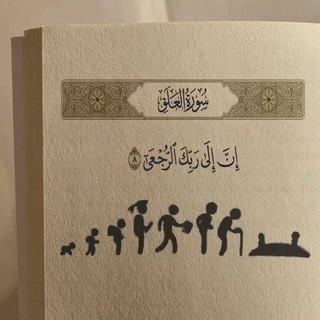 سُورَةُ الْعَلَقِ
إِنَّ إِلَىٰ رَبِّكَ ٱلرُّجْعَىٰ ٨